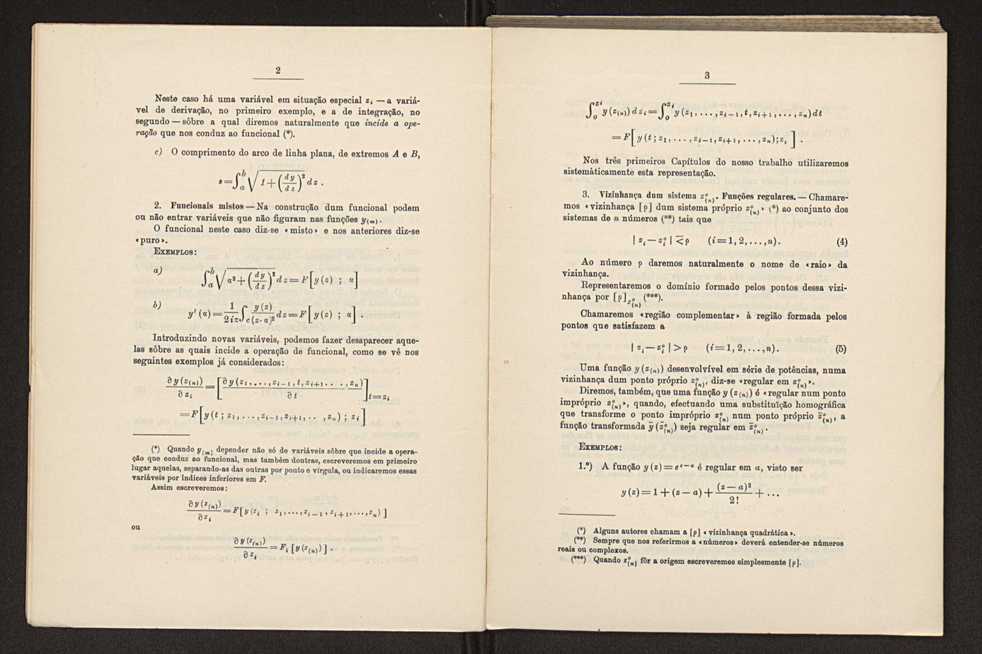 2
Neste caso há uma variável em situação especial z_i — a variá-
vel de derivação, no primeiro exemplo, e a de integração, no
segundo — sôbre a qual diremos naturalmente que incide a ope-
ração que nos conduz ao funcional (*).
c) O comprimento do arco de linha plana, de extremos A e B,
s = ∫_a^b √(1 + (dy/dz)²) dz .
2. Funcionais mistos — Na construção dum funcional podem
ou não entrar variáveis que não figuram nas funções y_(m).
O funcional neste caso diz-se «misto» e nos anteriores diz-se
«puro».
EXEMPLOS:
a) ∫_a^b √(a² + (dy/dz)²) dz = F[y(z) ; a]
b) y'(a) = 1/2iπ ∫_c y(z)/(z-a)² dz = F[y(z) ; a] .
Introduzindo novas variáveis, podemos fazer desaparecer aque-
las sôbre as quais incide a operação de funcional, como se vê nos
seguintes exemplos já considerados:
∂y(z_(n))/∂z_i = [∂y(z_1, ..., z_{i-1}, t, z_{i+1}, ..., z_n)/∂t]_{t=z_i}
= F[y(t ; z_1, ..., z_{i-1}, z_{i+1}, .. , z_n) ; z_i]
(*) Quando y_(m) depender não só de variáveis sôbre que incide a opera-
ção que conduz ao funcional, mas também doutras, escreveremos em primeiro
lugar aquelas, separando-as das outras por ponto e vírgula, ou indicaremos essas
variáveis por índices inferiores em F.
Assim escreveremos:
∂y(z_(n))/∂z_i = F[y(z_i ; z_1, ..., z_{i-1}, z_{i+1}, ..., z_n)]
ou
∂y(z_(n))/∂z_i = F_i [y(z_(n))] .
3
∫_0^{z_i} y(z_(n)) dz_i = ∫_0^{z_i} y(z_1, ..., z_{i-1}, t, z_{i+1}, ..., z_n) dt
= F[y(t ; z_1, ..., z_{i-1}, z_{i+1}, ..., z_n); z_i] .
Nos três primeiros Capítulos do nosso trabalho utilizaremos
sistemàticamente esta representação.
3. Vizinhança dum sistema z°_(n). Funções regulares. — Chamare-
mos «vizinhança [ρ] dum sistema próprio z°_(n)» (*) ao conjunto dos
sistemas de n números (**) tais que
| z_i — z°_i | ≤ ρ (i = 1, 2, ..., n). (4)
Ao número ρ daremos naturalmente o nome de «raio» da
vizinhança.
Representaremos o domínio formado pelos pontos dessa vizi-
nhança por [ρ]_{z°_(n)} (***).
Chamaremos «região complementar» à região formada pelos
pontos que satisfazem a
| z_i — z°_i | > ρ (i = 1, 2, ..., n). (5)
Uma função y(z_(n)) desenvolvível em série de potências, numa
vizinhança dum ponto próprio z°_(n), diz-se «regular em z°_(n)».
Diremos, também, que uma função y(z_(n)) é «regular num ponto
impróprio z°_(n)», quando, efectuando uma substituïção homográfica
que transforme o ponto impróprio z°_(n) num ponto próprio z̄°_(n), a
função transformada ȳ(z̄°_(n)) seja regular em z̄°_(n).
EXEMPLOS:
1.º) A função y(z) = e^{z-a} é regular em a, visto ser
y(z) = 1 + (z — a) + (z — a)²/2! + ...
(*) Alguns autores chamam a [ρ] «vizinhança quadrática».
(**) Sempre que nos referirmos a «números» deverá entender-se números
reais ou complexos.
(***) Quando z°_(n) fôr a origem escreveremos simplesmente [ρ].